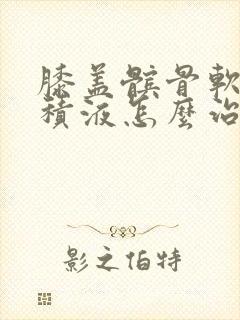 膝盖髌骨軟
積液怎麼治
影之伯特